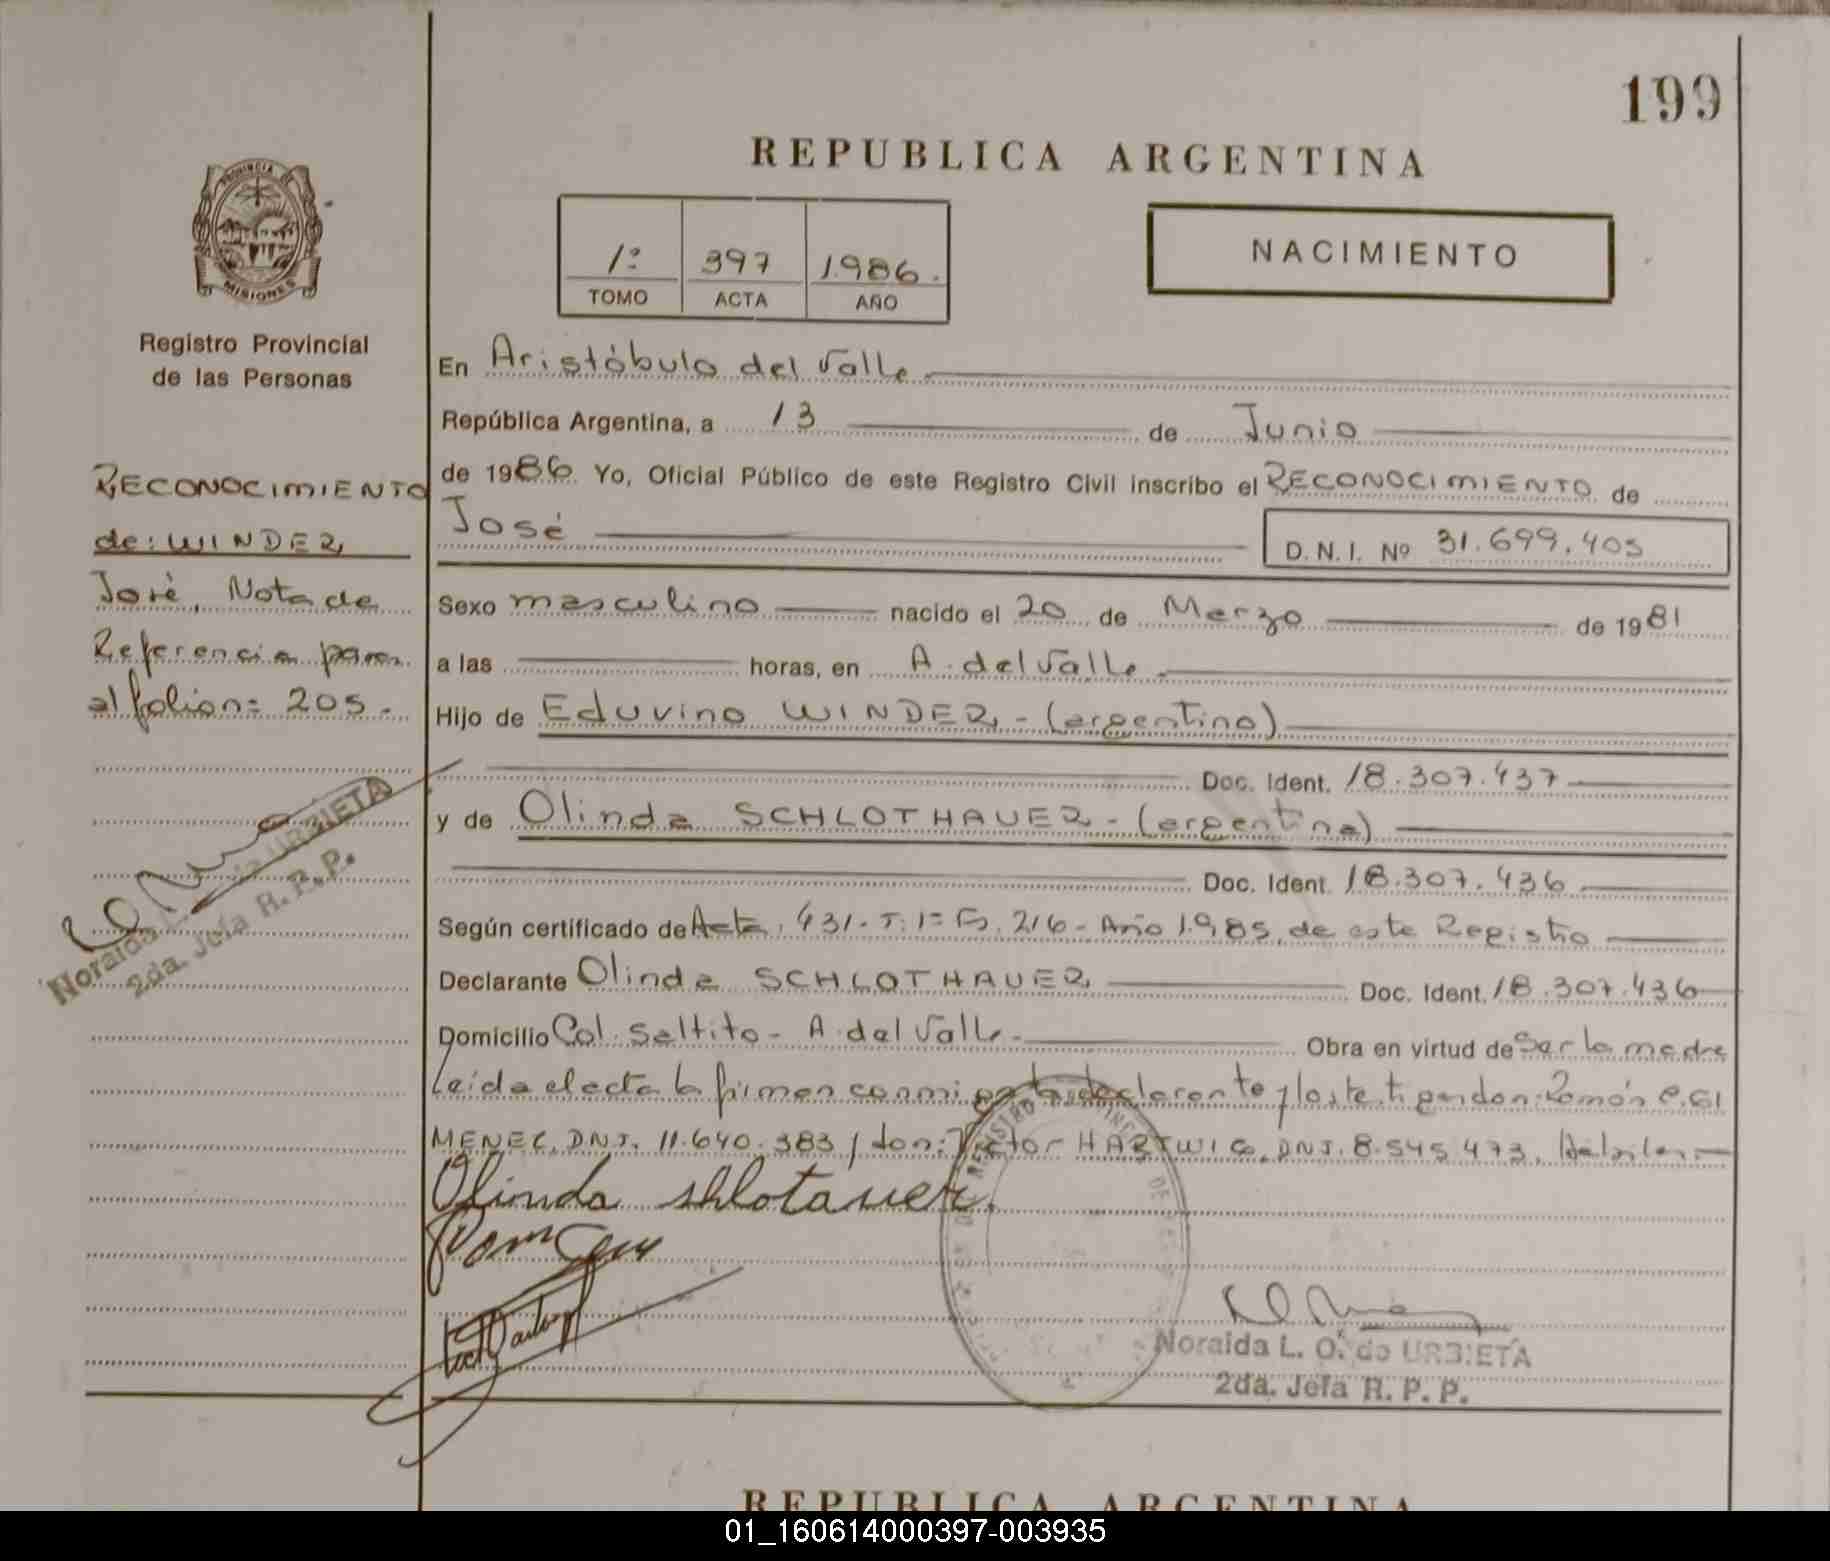 199
REPUBLICA ARGENTINA
PROVINCIA DE
MISIONES
Registro Provincial
de las Personas
1º 397 1.986.
TOMO ACTA AÑO
NACIMIENTO
En Aristóbulo del Valle
República Argentina, a 13 de Junio
de 1986. Yo, Oficial Público de este Registro Civil inscribo el RECONOCIMIENTO de
José D.N.I. Nº 31.699.405
Sexo masculino nacido el 20 de Marzo de 1981
a las horas, en A. del Valle
Hijo de Eduvino WINDER - (argentino)
Doc. Ident. 18.307.437
y de Olinda SCHLOTHAUER - (argentina)
Doc. Ident. 18.307.436
Según certificado de Acta: 431- T: 1= Fº. 216 - Año 1.985, de este Registro
Declarante Olinda SCHLOTHAUER Doc. Ident. 18.307.436
Domicilio Col. Saltito - A. del Valle - Obra en virtud de Ser la madre
Leída el acta la firman conmigo la declarante y los testigos don: Ramón
DNI. 11.640.383 y don: Víctor HARTWIG, DNI. 8.545.473,
Olinda shlotauer.
Noraida L. O. de URBIETA
2da. Jefa R. P. P.
RECONOCIMIENTO
de: WINDER,
José, Nota de
Referencia pasa
al folio n= 205.-
Noraida L. URBIETA
2da. Jefa R. P. P.
REPUBLICA ARGENTINA
01_160614000397-003935